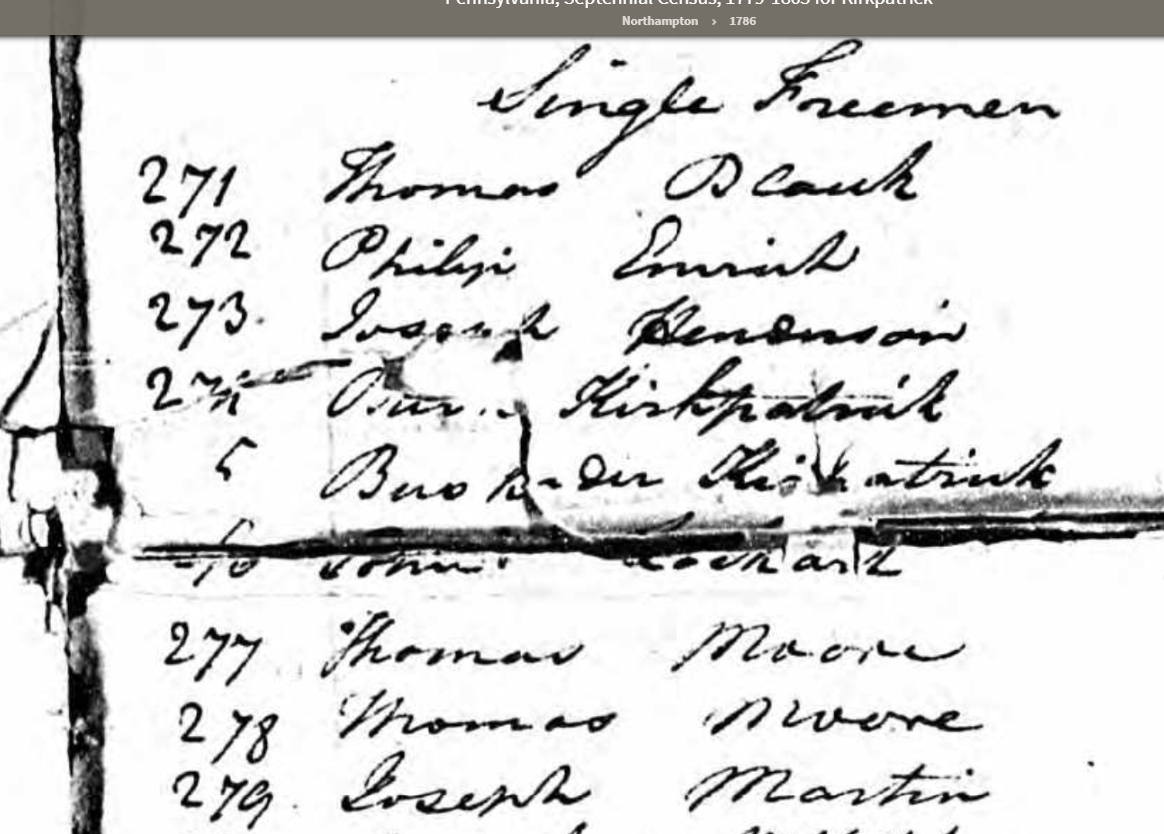 Pennsylvania, Septennial Census, 1779-1863 for Kirkpatrick
Northampton > 1786
Single Freemen
271 Thomas Blauk
272 Philip Emrich
273 Joseph Henderson
274 Kirkpatrick
5 Kirkpatrick
6 John Lockart
277 Thomas Moore
278 Thomas Moore
279 Joseph Martin